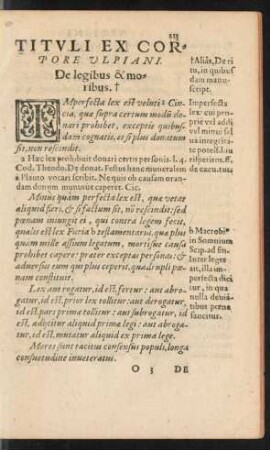 TITVLI EX COR-
PORE VLPIANI.
De legibus & mo-
ribus.†
IMperfecta lex est veluti a Cin-
cia, quæ supra certum modū do-
nari prohibet, exceptis quibus-
dam cognatis, et si plus donatum
sit, non rescindit.
a Hæc lex prohibuit donari certis personis. l. 4.
Cod. Theodo. De donat. Festus hanc muneralem
a Plauto vocari scribit. Ne quis ob causam oran-
dam donum munusve caperet. Cic.
Minus quàm perfecta lex est, quæ vetat
aliquid fieri, & si factum sit, nō rescindit: sed
pœnam iniungit ei, qui contra legem fecit,
qualis est lex Furia b testamentaria, quæ plus
quàm mille assium legatum, mortisve causa
prohibet capere: præter exceptas personas, &
aduersus eum qui plus ceperit, quadrupli pœ-
nam constituit.
Lex aut rogatur, id est, fertur: aut abro-
gatur, id est, prior lex tollitur: aut derogatur,
id est, pars prima tollitur: aut subrogatur, id
est, adijcitur aliquid primæ legi: aut obroga-
tur, id est, mutatur aliquid ex prima lege.
Mores sunt tacitus consensus populi, longa
consuetudine inueteratus.
O 3 DE
†Aliâs, De ri
tu, in quibus
dam manu-
script.
Imperfecta
lex cui pro
priè vel addi
b Macrobi⁹
in Somnium
Scip. ad En-
nium legit,
illa im-
perfecta dici
tur, in qua
nulla deuiā-
tibus pœna
sancitur.